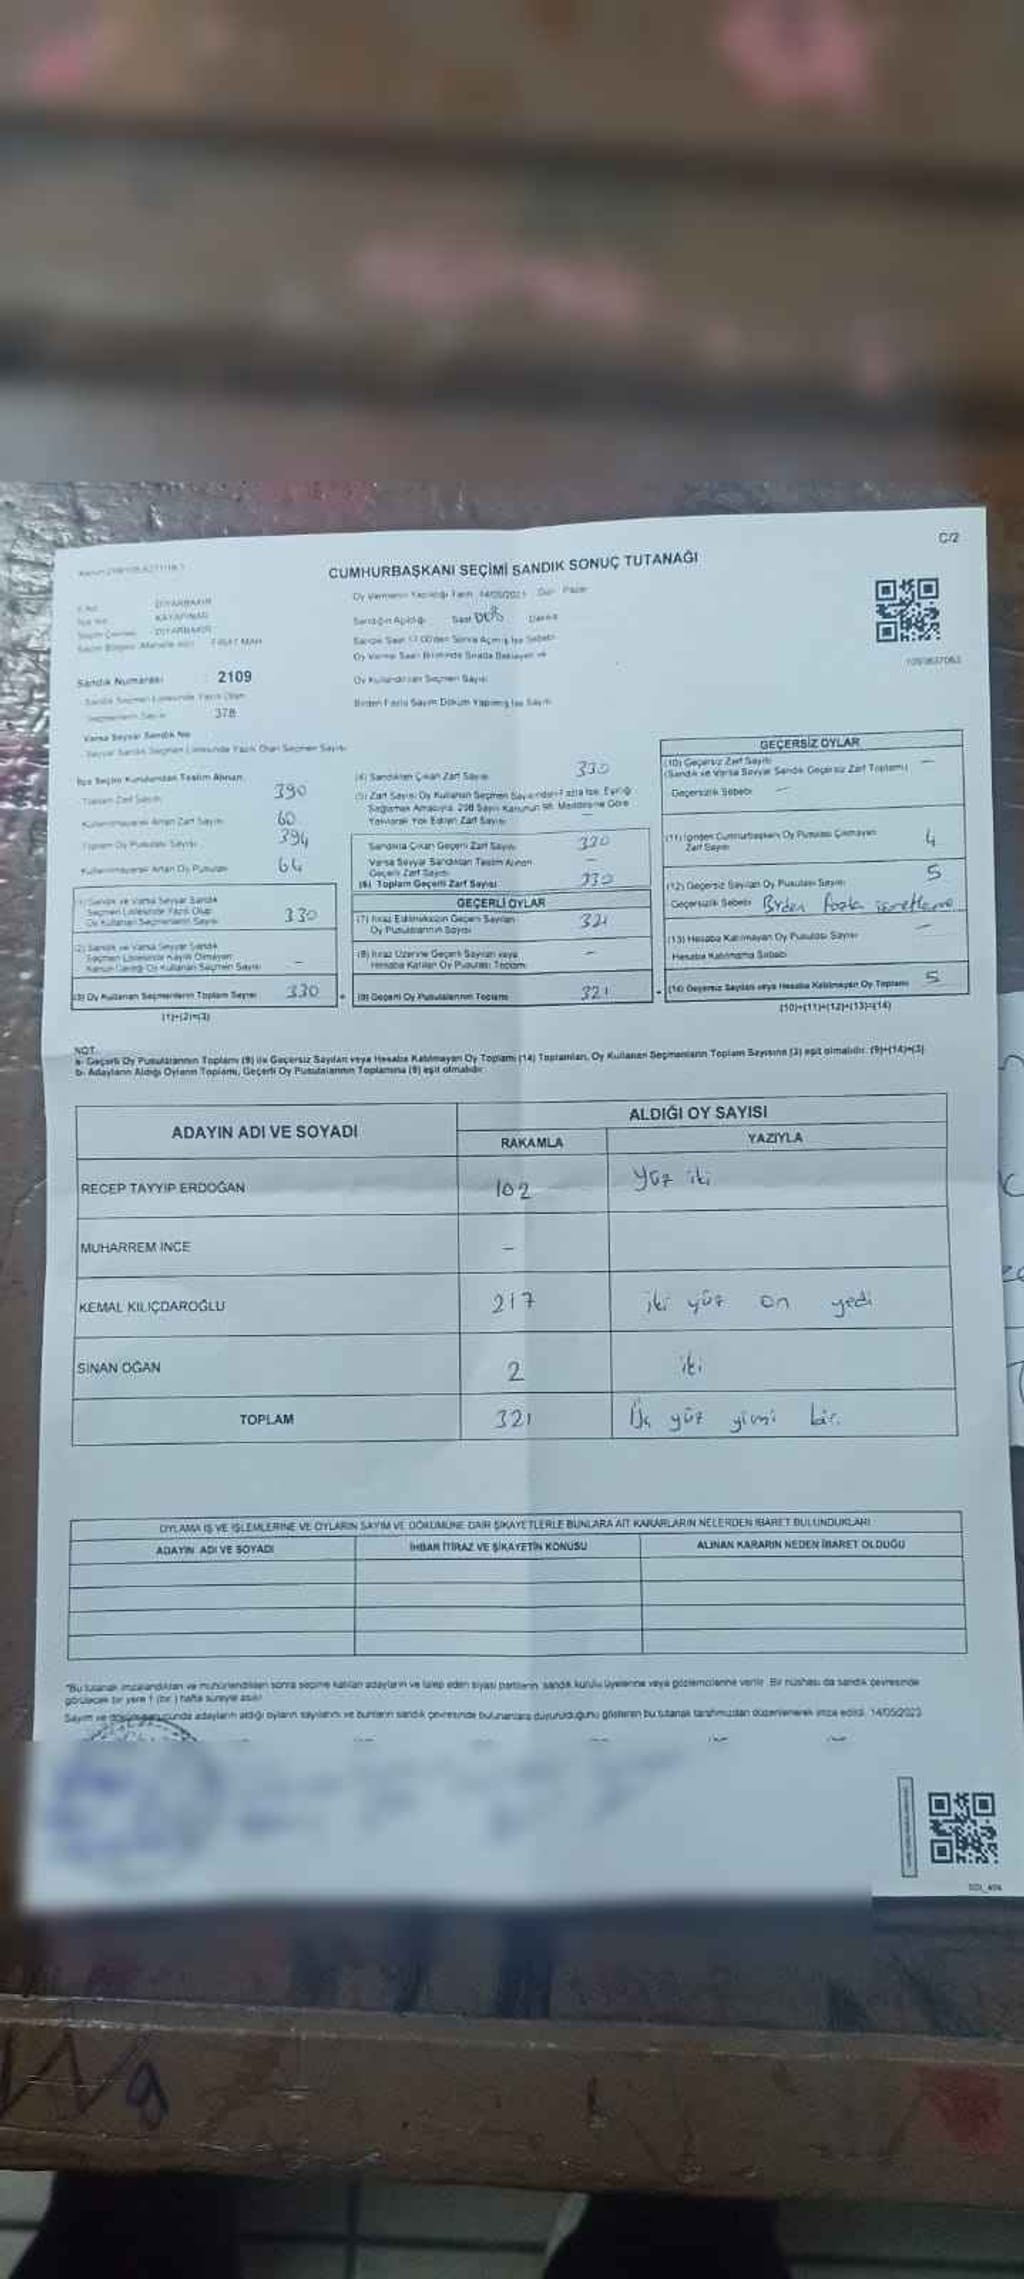 C/2
CUMHURBAŞKANI SEÇİMİ SANDIK SONUÇ TUTANAĞI
Oy Vermenin Yapıldığı Tarih 14/05/2023 Gün Pazar
DİYARBAKIR
KAYAPINAR
DİYARBAKIR
FIRAT MAH
Sandığın Açıldığı Saat Dakika
Sandık Saat 17:00'den Sonra Açılmış İse Sebebi
Oy Verme Saati Bitiminde Sırada Bekleyen ve
Oy Kullandırılan Seçmen Sayısı
Birden Fazla Sayım Döküm Yapılmış İse Sayısı
Sandık Numarası 2109
Sandık Seçmen Listesinde Yazılı Olan
Seçmenlerin Sayısı 378
Varsa Seyyar Sandık No
Seyyar Sandık Seçmen Listesinde Yazılı Olan Seçmen Sayısı
İlçe Seçim Kurulundan Teslim Alınan
Toplam Zarf Sayısı 390
Kullanılmayarak Artan Zarf Sayısı 60
Toplam Oy Pusulası Sayısı 394
Kullanılmayarak Artan Oy Pusulası 64
(1) Sandık ve Varsa Seyyar Sandık
Seçmen Listesinde Yazılı Olup
Oy Kullanan Seçmenlerin Sayısı 330
(2) Sandık ve Varsa Seyyar Sandık
Seçmen Listesinde Kayıtlı Olmayan
Kanun Gereği Oy Kullanan Seçmen Sayısı -
(3) Oy Kullanan Seçmenlerin Toplam Sayısı 330
(1)+(2)=(3)
(4) Sandıktan Çıkan Zarf Sayısı 330
(5) Zarf Sayısı Oy Kullanan Seçmen Sayısından Fazla İse, Eşitliği
Sağlamak Amacıyla, 298 Sayılı Kanunun 98. Maddesine Göre
Yakılarak Yok Edilen Zarf Sayısı -
Sandıkta Çıkan Geçerli Zarf Sayısı 330
Varsa Seyyar Sandıktan Teslim Alınan
Geçerli Zarf Sayısı -
(6) Toplam Geçerli Zarf Sayısı 330
GEÇERLİ OYLAR
(7) İtiraz Edilmeksizin Geçerli Sayılan
Oy Pusulalarının Sayısı 321
(8) İtiraz Üzerine Geçerli Sayılan veya
Hesaba Katılan Oy Pusulası Toplamı -
(9) Geçerli Oy Pusulalarının Toplamı 321
GEÇERSİZ OYLAR
(10) Geçersiz Zarf Sayısı
(Sandık ve Varsa Seyyar Sandık Geçersiz Zarf Toplamı) -
Geçersizlik Sebebi -
(11) İçinden Cumhurbaşkanı Oy Pusulası Çıkmayan
Zarf Sayısı 4
(12) Geçersiz Sayılan Oy Pusulası Sayısı 5
Geçersizlik Sebebi Birden fazla işretleme
(13) Hesaba Katılmayan Oy Pusulası Sayısı -
Hesaba Katılmama Sebebi
(14) Geçersiz Sayılan veya Hesaba Katılmayan Oy Toplamı 5
(10)+(11)+(12)+(13)=(14)
NOT
a- Geçerli Oy Pusulalarının Toplamı (9) ile Geçersiz Sayılan veya Hesaba Katılmayan Oy Toplamı (14) Toplamları, Oy Kullanan Seçmenlerin Toplam Sayısına (3) eşit olmalıdır. (9)+(14)=(3)
b- Adayların Aldığı Oyların Toplamı, Geçerli Oy Pusulalarının Toplamına (9) eşit olmalıdır.
ADAYIN ADI VE SOYADI ALDIĞI OY SAYISI
RAKAMLA YAZIYLA
RECEP TAYYİP ERDOĞAN 102 yüz iki
MUHARREM İNCE -
KEMAL KILIÇDAROĞLU 217 iki yüz on yedi
SİNAN OĞAN 2 iki
TOPLAM 321 Üç yüz yirmi bir.
OYLAMA İŞ VE İŞLEMLERİNE VE OYLARIN SAYIM VE DÖKÜMÜNE DAİR ŞİKAYETLERLE BUNLARA AİT KARARLARIN NELERDEN İBARET BULUNDUKLARI
ADAYIN ADI VE SOYADI İHBAR İTİRAZ VE ŞİKAYETİN KONUSU ALINAN KARARIN NEDEN İBARET OLDUĞU
"Bu tutanak imzalandıktan ve mühürlendikten sonra seçime katılan adayların ve talep eden siyasi partilerin sandık kurulu üyelerine veya gözlemcilerine verilir. Bir nüshası da sandık çevresinde
görülecek bir yere 1 (bir) hafta süreyle asılır.
Sayım ve dökümde adayların aldığı oyların sayılarını ve bunların sandık çevresinde bulunanlara duyurulduğunu gösteren bu tutanak tarafımızdan düzenlenerek imza edildi. 14/05/2023